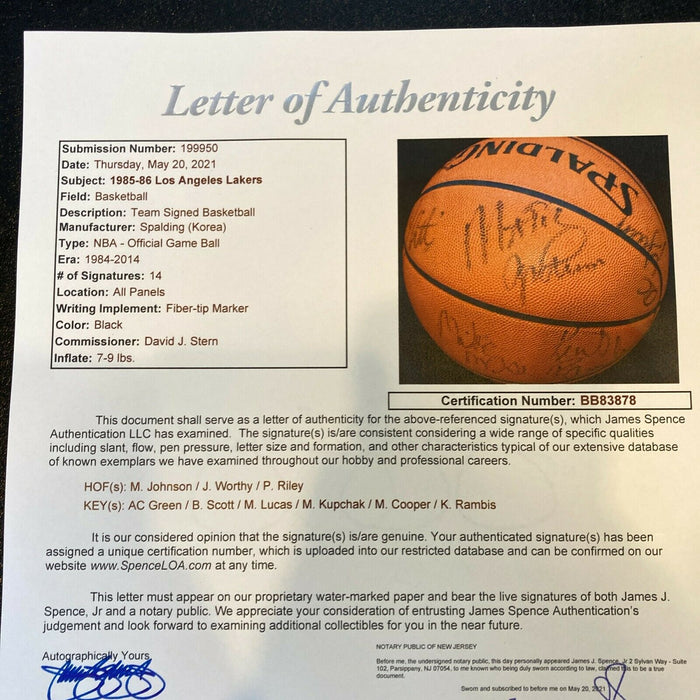 Letter of Authenticity
Submission Number: 199950
Date: Thursday, May 20, 2021
Subject: 1985-86 Los Angeles Lakers
Field: Basketball
Description: Team Signed Basketball
Manufacturer: Spalding (Korea)
Type: NBA - Official Game Ball
Era: 1984-2014
# of Signatures: 14
Location: All Panels
Writing Implement: Fiber-tip Marker
Color: Black
Commissioner: David J. Stern
Inflate: 7-9 lbs.
SPALDING
Certification Number: BB83878
This document shall serve as a letter of authenticity for the above-referenced signature(s), which James Spence
Authentication LLC has examined. The signature(s) is/are consistent considering a wide range of specific qualities
including slant, flow, pen pressure, letter size and formation, and other characteristics typical of our extensive database
of known exemplars we have examined throughout our hobby and professional careers.
HOF(s): M. Johnson / J. Worthy / P. Riley
KEY(s): AC Green / B. Scott / M. Lucas / M. Kupchak / M. Cooper / K. Rambis
It is our considered opinion that the signature(s) is/are genuine. Your authenticated signature(s) has been
assigned a unique certification number, which is uploaded into our restricted database and can be confirmed on our
website www.SpenceLOA.com at any time.
This letter must appear on our proprietary water-marked paper and bear the live signatures of both James J.
Spence, Jr and a notary public. We appreciate your consideration of entrusting James Spence Authentication's
judgement and look forward to examining additional collectibles for you in the near future.
Autographically Yours,
NOTARY PUBLIC OF NEW JERSEY
Before me, the undersigned notary public, this day personally appeared James J. Spence, Jr 2 Sylvan Way - Suite
102, Parsippany, NJ 07054. to me known who being duly sworn according to law, claimed this to be a true
document.
Sworn and subscribed to before me on May 20, 2021